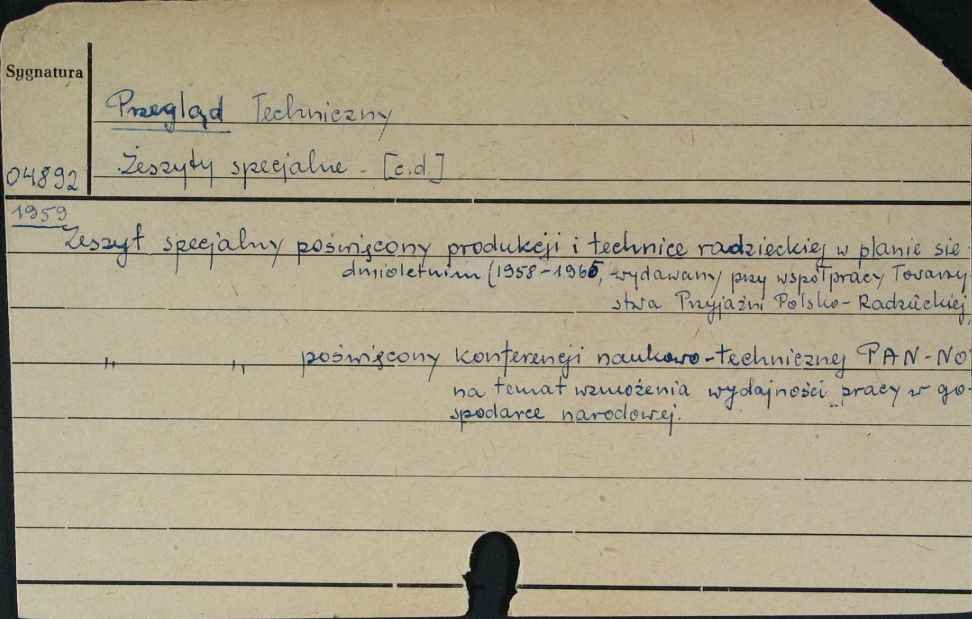 Sygnatura
Przegląd Techniczny
Zeszyty specjalne - [c.d.]
04892
1959
Zeszyt specjalny poświęcony produkcji i technice radzieckiej w planie sie
dmioletnim (1958-1965, wydawany przy współpracy Towarzy
stwa Przyjaźni Polsko-Radzieckiej
„ „ poświęcony konferencji naukowo-technicznej PAN-NO
na temat wzmożenia wydajności pracy w go-
spodarce narodowej.